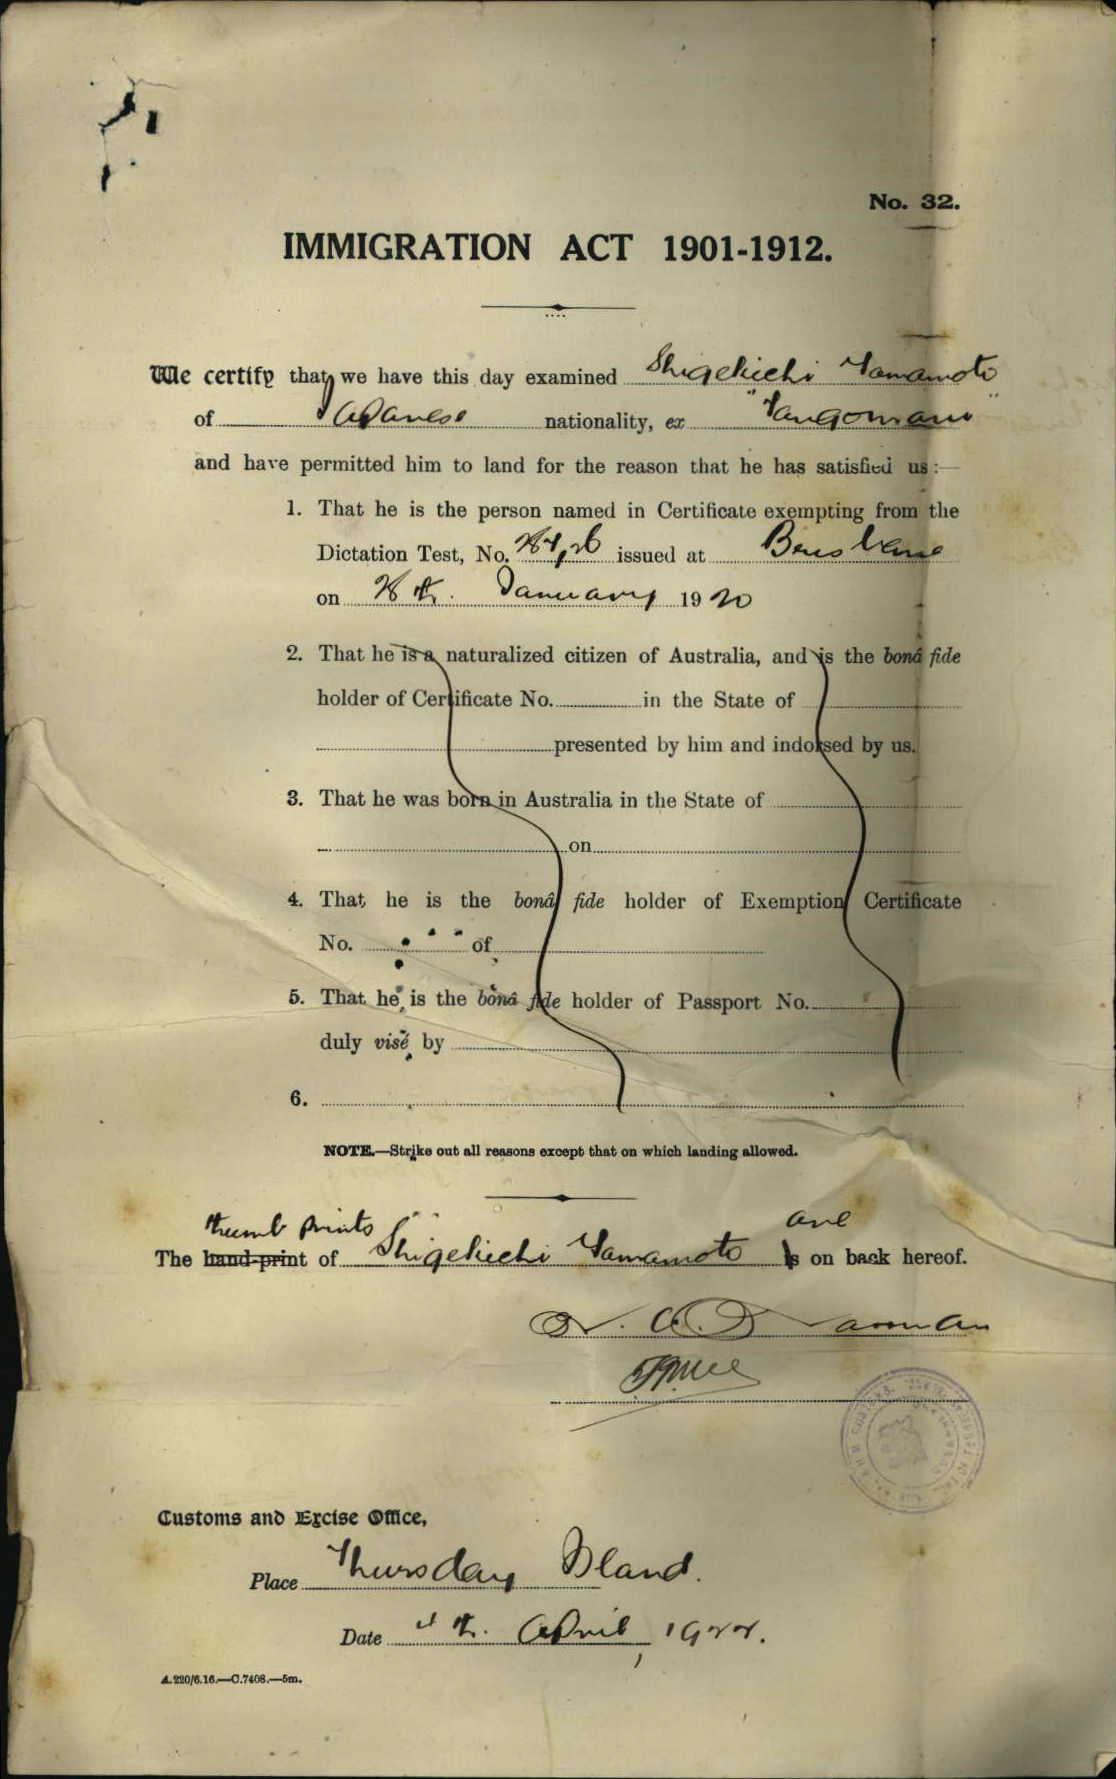 No. 32.
IMMIGRATION ACT 1901-1912.
We certify that we have this day examined Shigekichi Yamamoto
of Japanese nationality, ex "Tangomaru"
and have permitted him to land for the reason that he has satisfied us :—
1. That he is the person named in Certificate exempting from the
Dictation Test, No. issued at Brisbane
on January 1920
2. That he is a naturalized citizen of Australia, and is the bonâ fide
holder of Certificate No. in the State of
presented by him and indorsed by us.
3. That he was born in Australia in the State of
on
4. That he is the bonâ fide holder of Exemption Certificate
No. of
5. That he is the bonâ fide holder of Passport No.
duly visé by
6.
NOTE.—Strike out all reasons except that on which landing allowed.
thumb prints are
The hand-print of Shigekichi Yamamoto is on back hereof.
Customs and Excise Office,
Place Thursday Island.
Date April, 1922.
A.220/6.16.—C.7408.—5m.